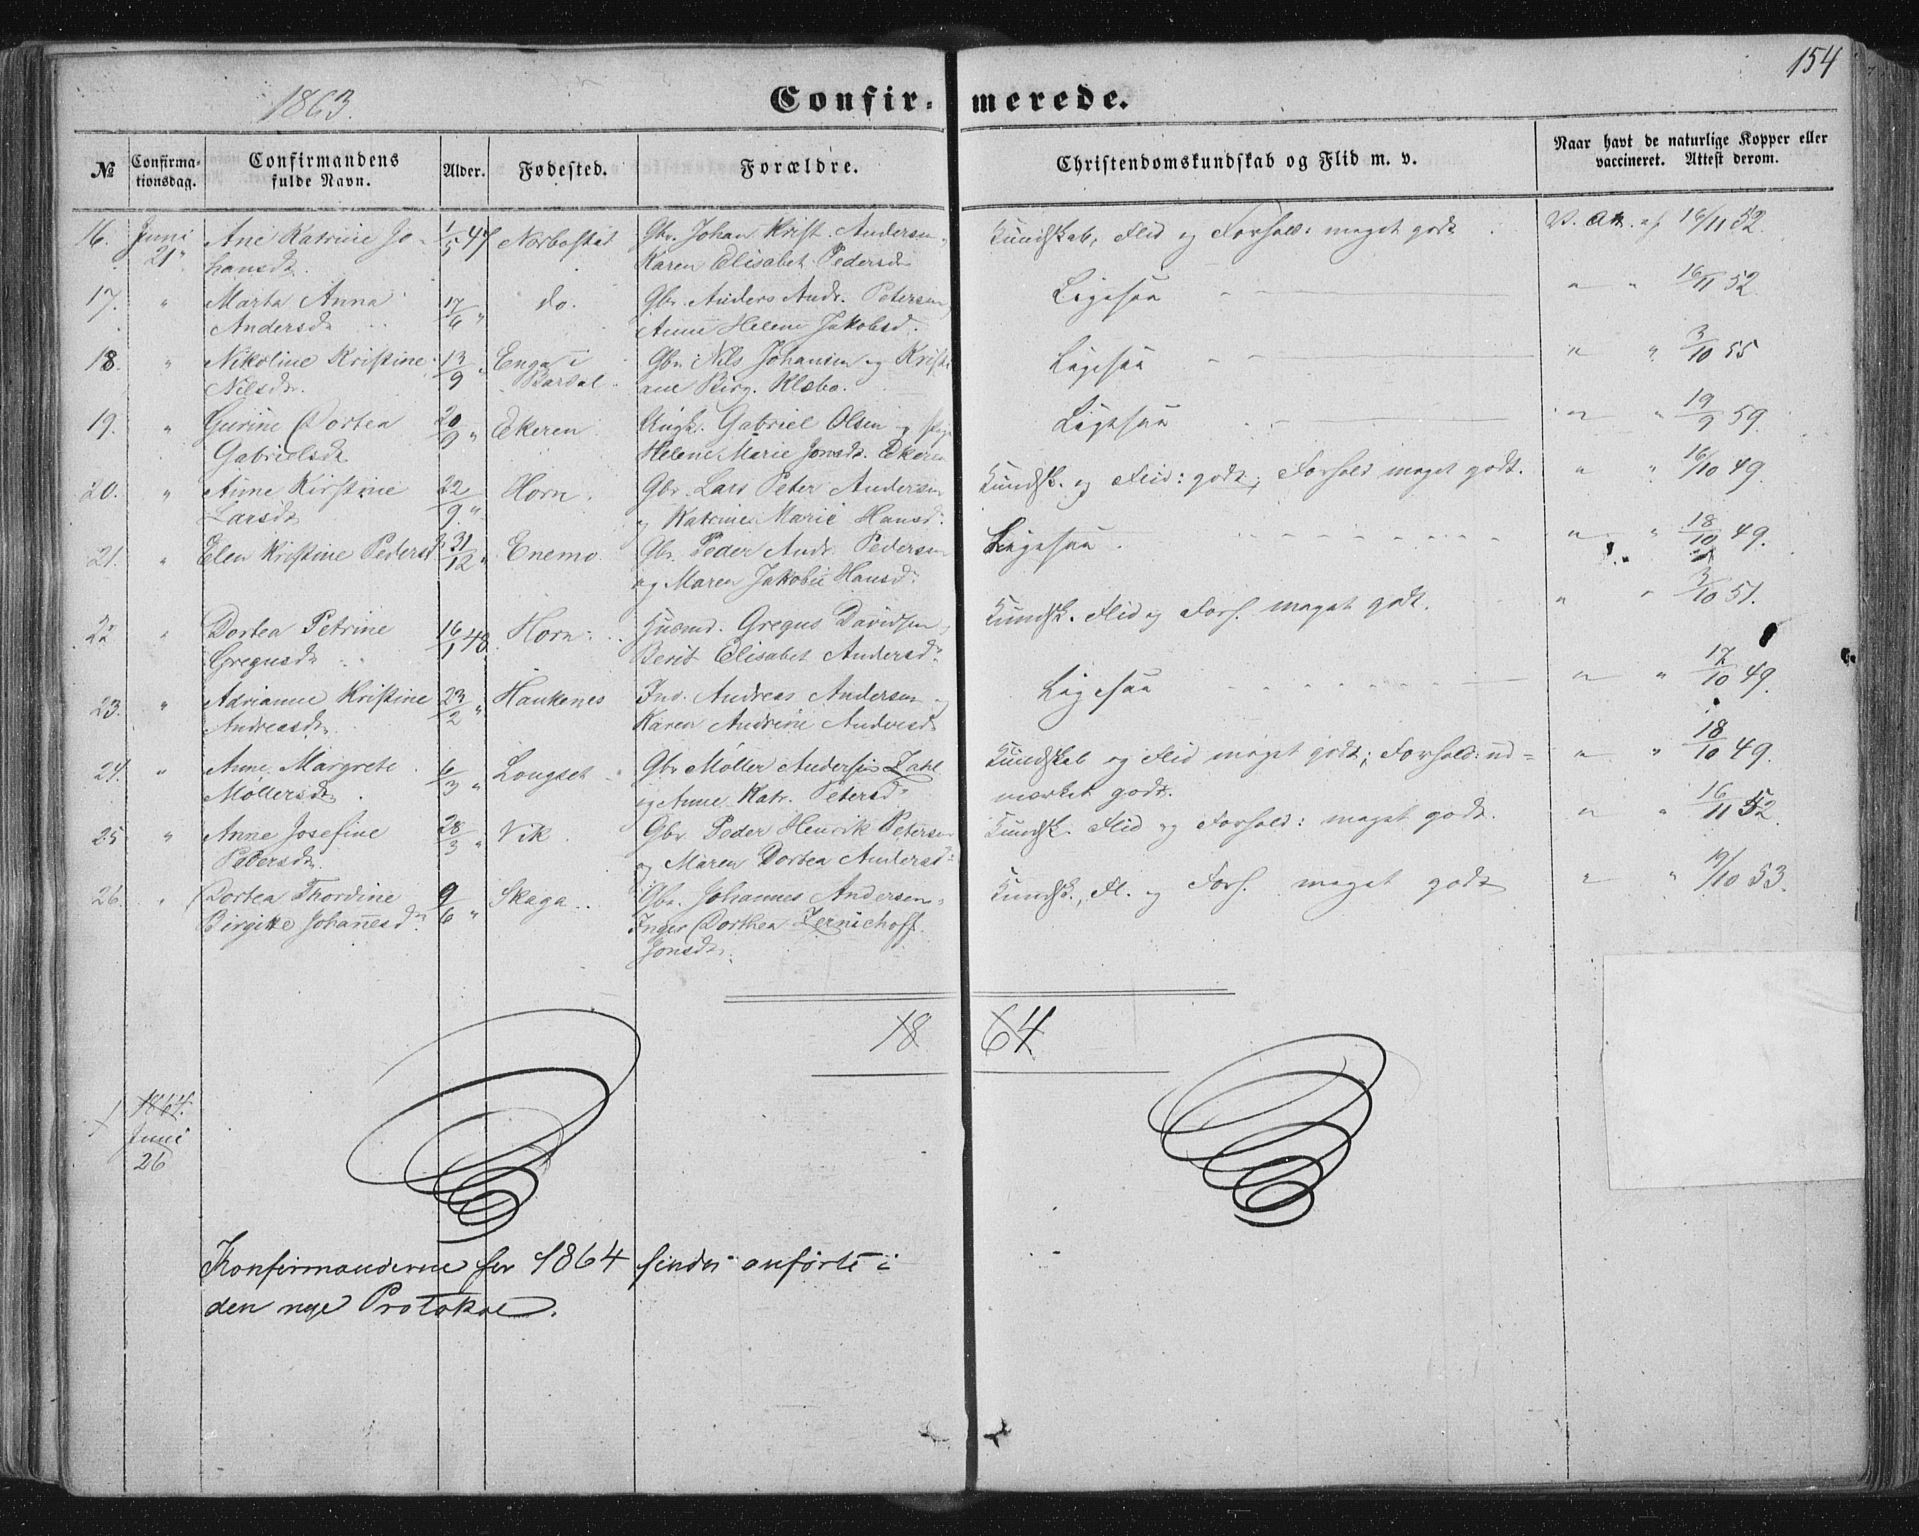 154
1863.
Confirmerede.
№ Confirmationsdag. Confirmandens fulde Navn. Alder. Fødested. Forældre. Christendomskundskab og Flid m. v. Naar havt de naturlige Kopper eller vaccineret. Attest derom.
16. Juni 21" Ane Katrine Jo- 1/5 47 Gbr. Johan Krist. Andersen, Kundskab, Flid og Forhold: meget godt V. Att. af 16/11 52.
hansdr. Karen Elisabet Pedersdr
17. " Marta Anna 17/6 " do. Gbr. Anders Andr. Petersen, Ligesaa " " 16/11 52
Andersdr Anne Helene Jakobsd.
18. " Nikoline Kristine 13/9 " Enga i Gbr. Nils Johansen og Kristi- Ligesaa " " 3/10 55
Nilsdr. Bardal ane Birg. Klebo.
19. " Gurine Dortea 20/9 " Ekeren Ungk. Gabriel Olsen og Ligesaa " " 19/9 59.
Gabrielsdr Helene Marie Jonsdr. Ekeren
20. " Anne Kirstine 22/9 " Horn. Gbr. Lars Peter Andersen Kundsk. og Flid: godt; Forhold meget godt. " " 16/10 49.
Larsdr og Katrine Marie Hansdr.
21. " Elen Kristine Pedersdr 31/12 " Enemo Gbr. Peder Andr. Pedersen Ligesaa. " " 18/10 49.
og Maren Jakobie Hansdr.
22 " Dortea Petrine 16/1 48 Horn. Husmd. Gregus Davidsen, Kundsk. Flid og Forh. meget godt. " " 3/10 51.
Gregusdr Berit Elisabet Andersdr.
23. " Adrianne Kristine 23/2 " Haukenes Ind. Andreas Andersen og Ligesaa " " 17/10 49.
Andreasdr. Karen Andrine Andersdr
24. " Anne Margrete 6/3 " Longset Gbr Møller Andersen Zahl Kundskab og Flid meget godt; Forhold: ud- " " 18/10 49.
Møllersdr. og Anne Katr. Petersdr mærket godt.
25 " Anne Josefine 28/3 " Vik. Gbr. Peder Henrik Petersen Kundsk. Flid og Forhold: meget godt. " " 16/11 52.
Pedersdr. og Maren Dortea Andersdr.
26. " Dortea Thordine 9/6 " Skaga Gbr. Johannes Andersen, Kundsk., Fl. og Forh. meget godt " " 19/10 53.
Birgitte Johannesdr. Inger Dorthea Zernichoff
Jonsdr.
1864
1 1864.
Juni
26
Konfirmanderne for 1864 findes anførte i
den nye Protokol.